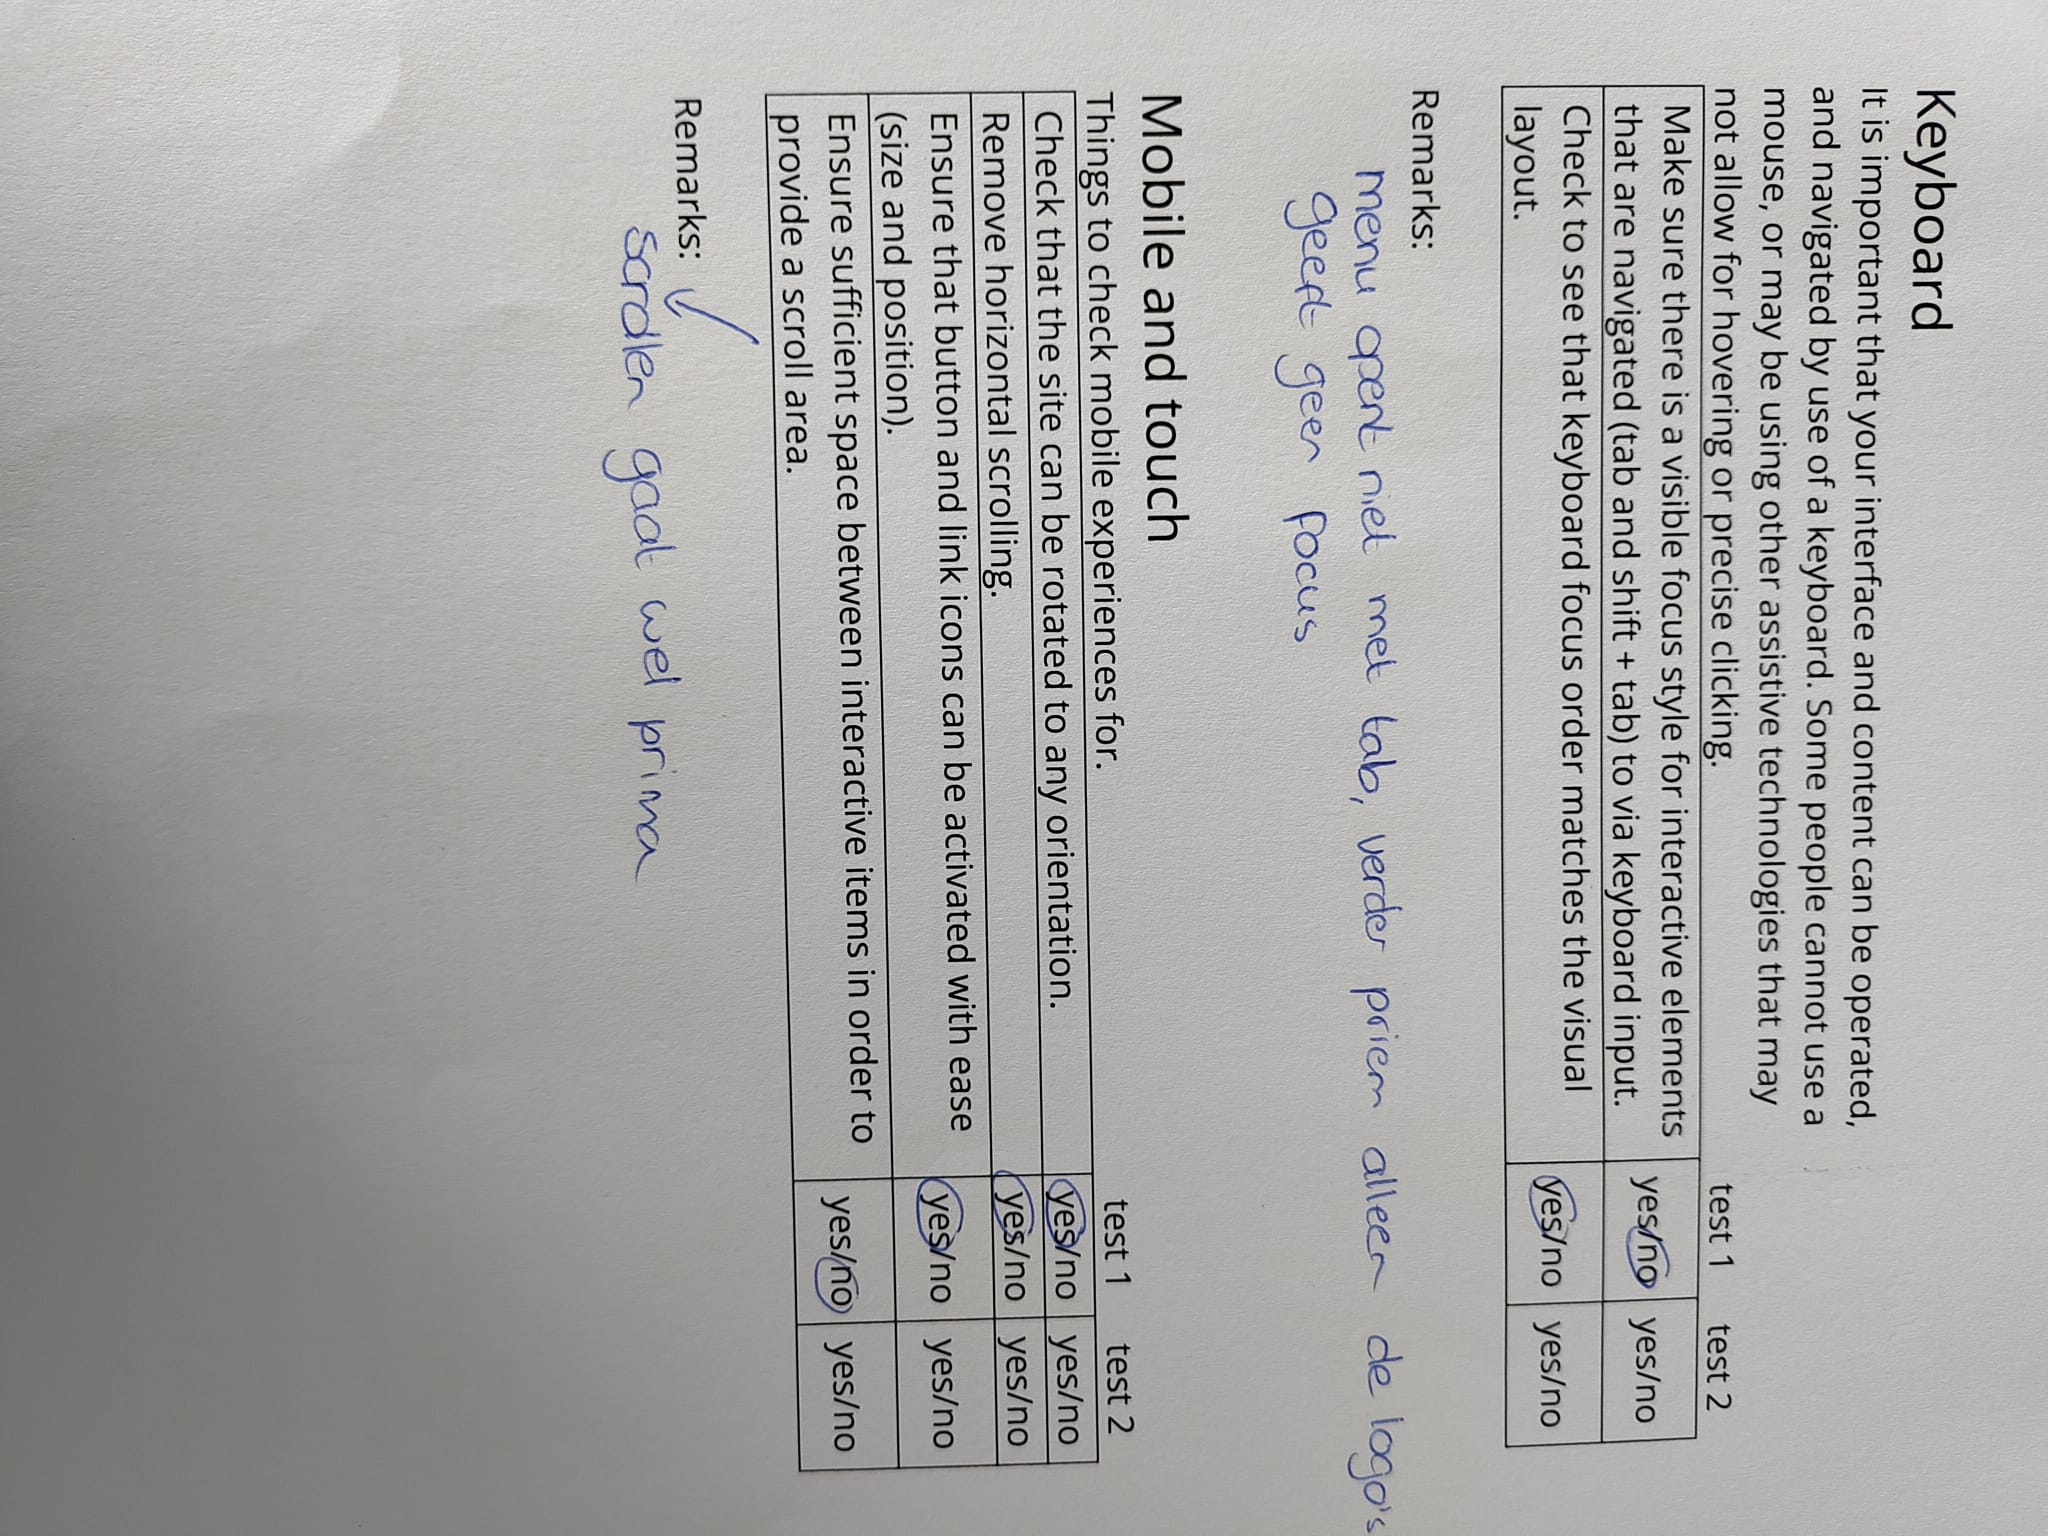 Keyboard
It is important that your interface and content can be operated,
and navigated by use of a keyboard. Some people cannot use a
mouse, or may be using other assistive technologies that may
not allow for hovering or precise clicking.
test 1 test 2
Make sure there is a visible focus style for interactive elements
that are navigated (tab and shift + tab) to via keyboard input.
yes/no yes/no
Check to see that keyboard focus order matches the visual
layout.
yes/no yes/no
Remarks:
menu opent niet met tab, verder priem alleen de logo's
geeft geen focus
Mobile and touch
Things to check mobile experiences for.
test 1 test 2
Check that the site can be rotated to any orientation. yes/no yes/no
Remove horizontal scrolling. yes/no yes/no
Ensure that button and link icons can be activated with ease
(size and position).
yes/no yes/no
Ensure sufficient space between interactive items in order to
provide a scroll area.
yes/no yes/no
Remarks: ✓
scrollen gaat wel prima